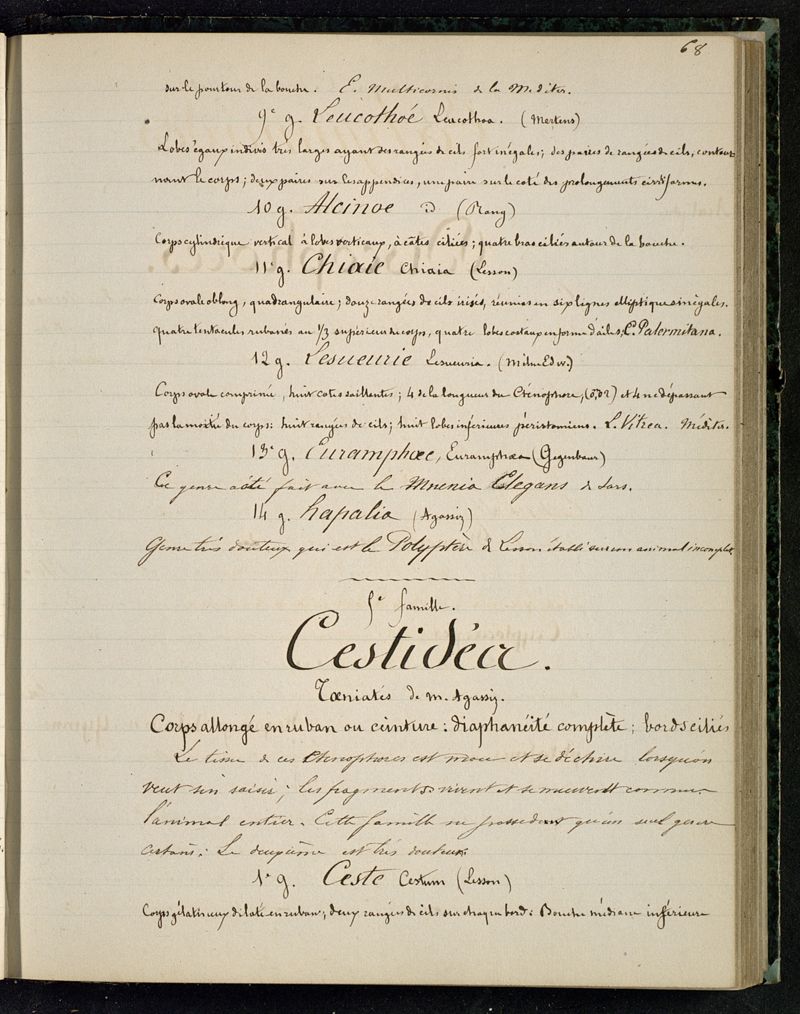 68
sur le pourtour de la bouche. E. Multicornis de la Méditer.
9e g. Leucothoé Leucothoa. (Mertens)
Lobes égaux indivis très larges ayant des rangées de cils fort inégales; des paires de rangées de cils, contour
nant le corps; deux paires sur les appendices, une paire sur le coté des prolongements cirrhiformes.
10 g. Alcinoe id (Rang)
Corps cylindrique vertical à lobes verticaux, à côtes ciliées; quatre bras ciliés autour de la bouche.
11e g. Chiaie Chiaia (Lesson)
Corps ovale oblong, quadrangulaire; douze rangées de cils irisés, réunies en six lignes elliptiques inégales.
quatre tentacules rubanés au 1/3 supérieur du corps, quatre lobes costaux en forme d'ailes, C. Palermitana.
12 g. Lesueurie Lesueuria. (Milne Edw.)
Corps ovale comprimé, huit cotes saillantes; 4 de la longueur du Cténophore, et 4 ne dépassant
pas la moitié du corps: huit rangées de cils; huit lobes inférieures péristomiens. L. Vitrea. Méditer.
13e g. Euramphœe, Euramphœa (Gegenbaur)
Ce genre a été fait avec le Mnemia Elegans de Sars.
14 g. hapalia (Agassiz)
Genre très douteux qui est le Polyptère de Lesson établi sur un animal incomplet
5e famille.
Cestidéa.
Tœniatés de M. Agassiz.
Corps allongé en ruban ou ceinture: diaphanéité complète; bords ciliés
Le tissu de ces Ctenophores est mou et se déchire lorsqu'on
veut s'en saisir; les fragments vivent et se meuvent comme
l'animal entier. Cette famille ne possède qu'un seul genre
certain: Le deuxième est très douteux.
1e g. Ceste Cestum (Lesson)
Corps gélatineux dilaté en ruban; deux rangées de cils sur chaque bord: Bouche médiane inférieure